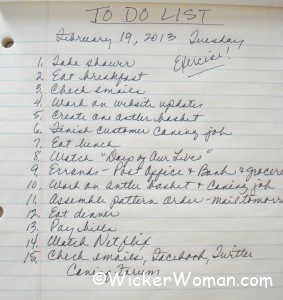 TO DO LIST
February 19, 2013 Tuesday
Exercise!
1. Take shower
2. Eat breakfast
3. Check emails
4. Work on website updates
5. Create one antler basket
6. Finish customer caning job
7. Eat lunch
8. Watch "Days of Our Lives"
9. Errands - Post Office & Bank & grocery
10. Work on antler basket & Caning job
11. Assemble pattern order - mail tomorro
12. Eat dinner
13. Pay bills
14. Watch Netflix
15. Check emails, Facebook, Twitter
Caning Forum
©WickerWoman.com